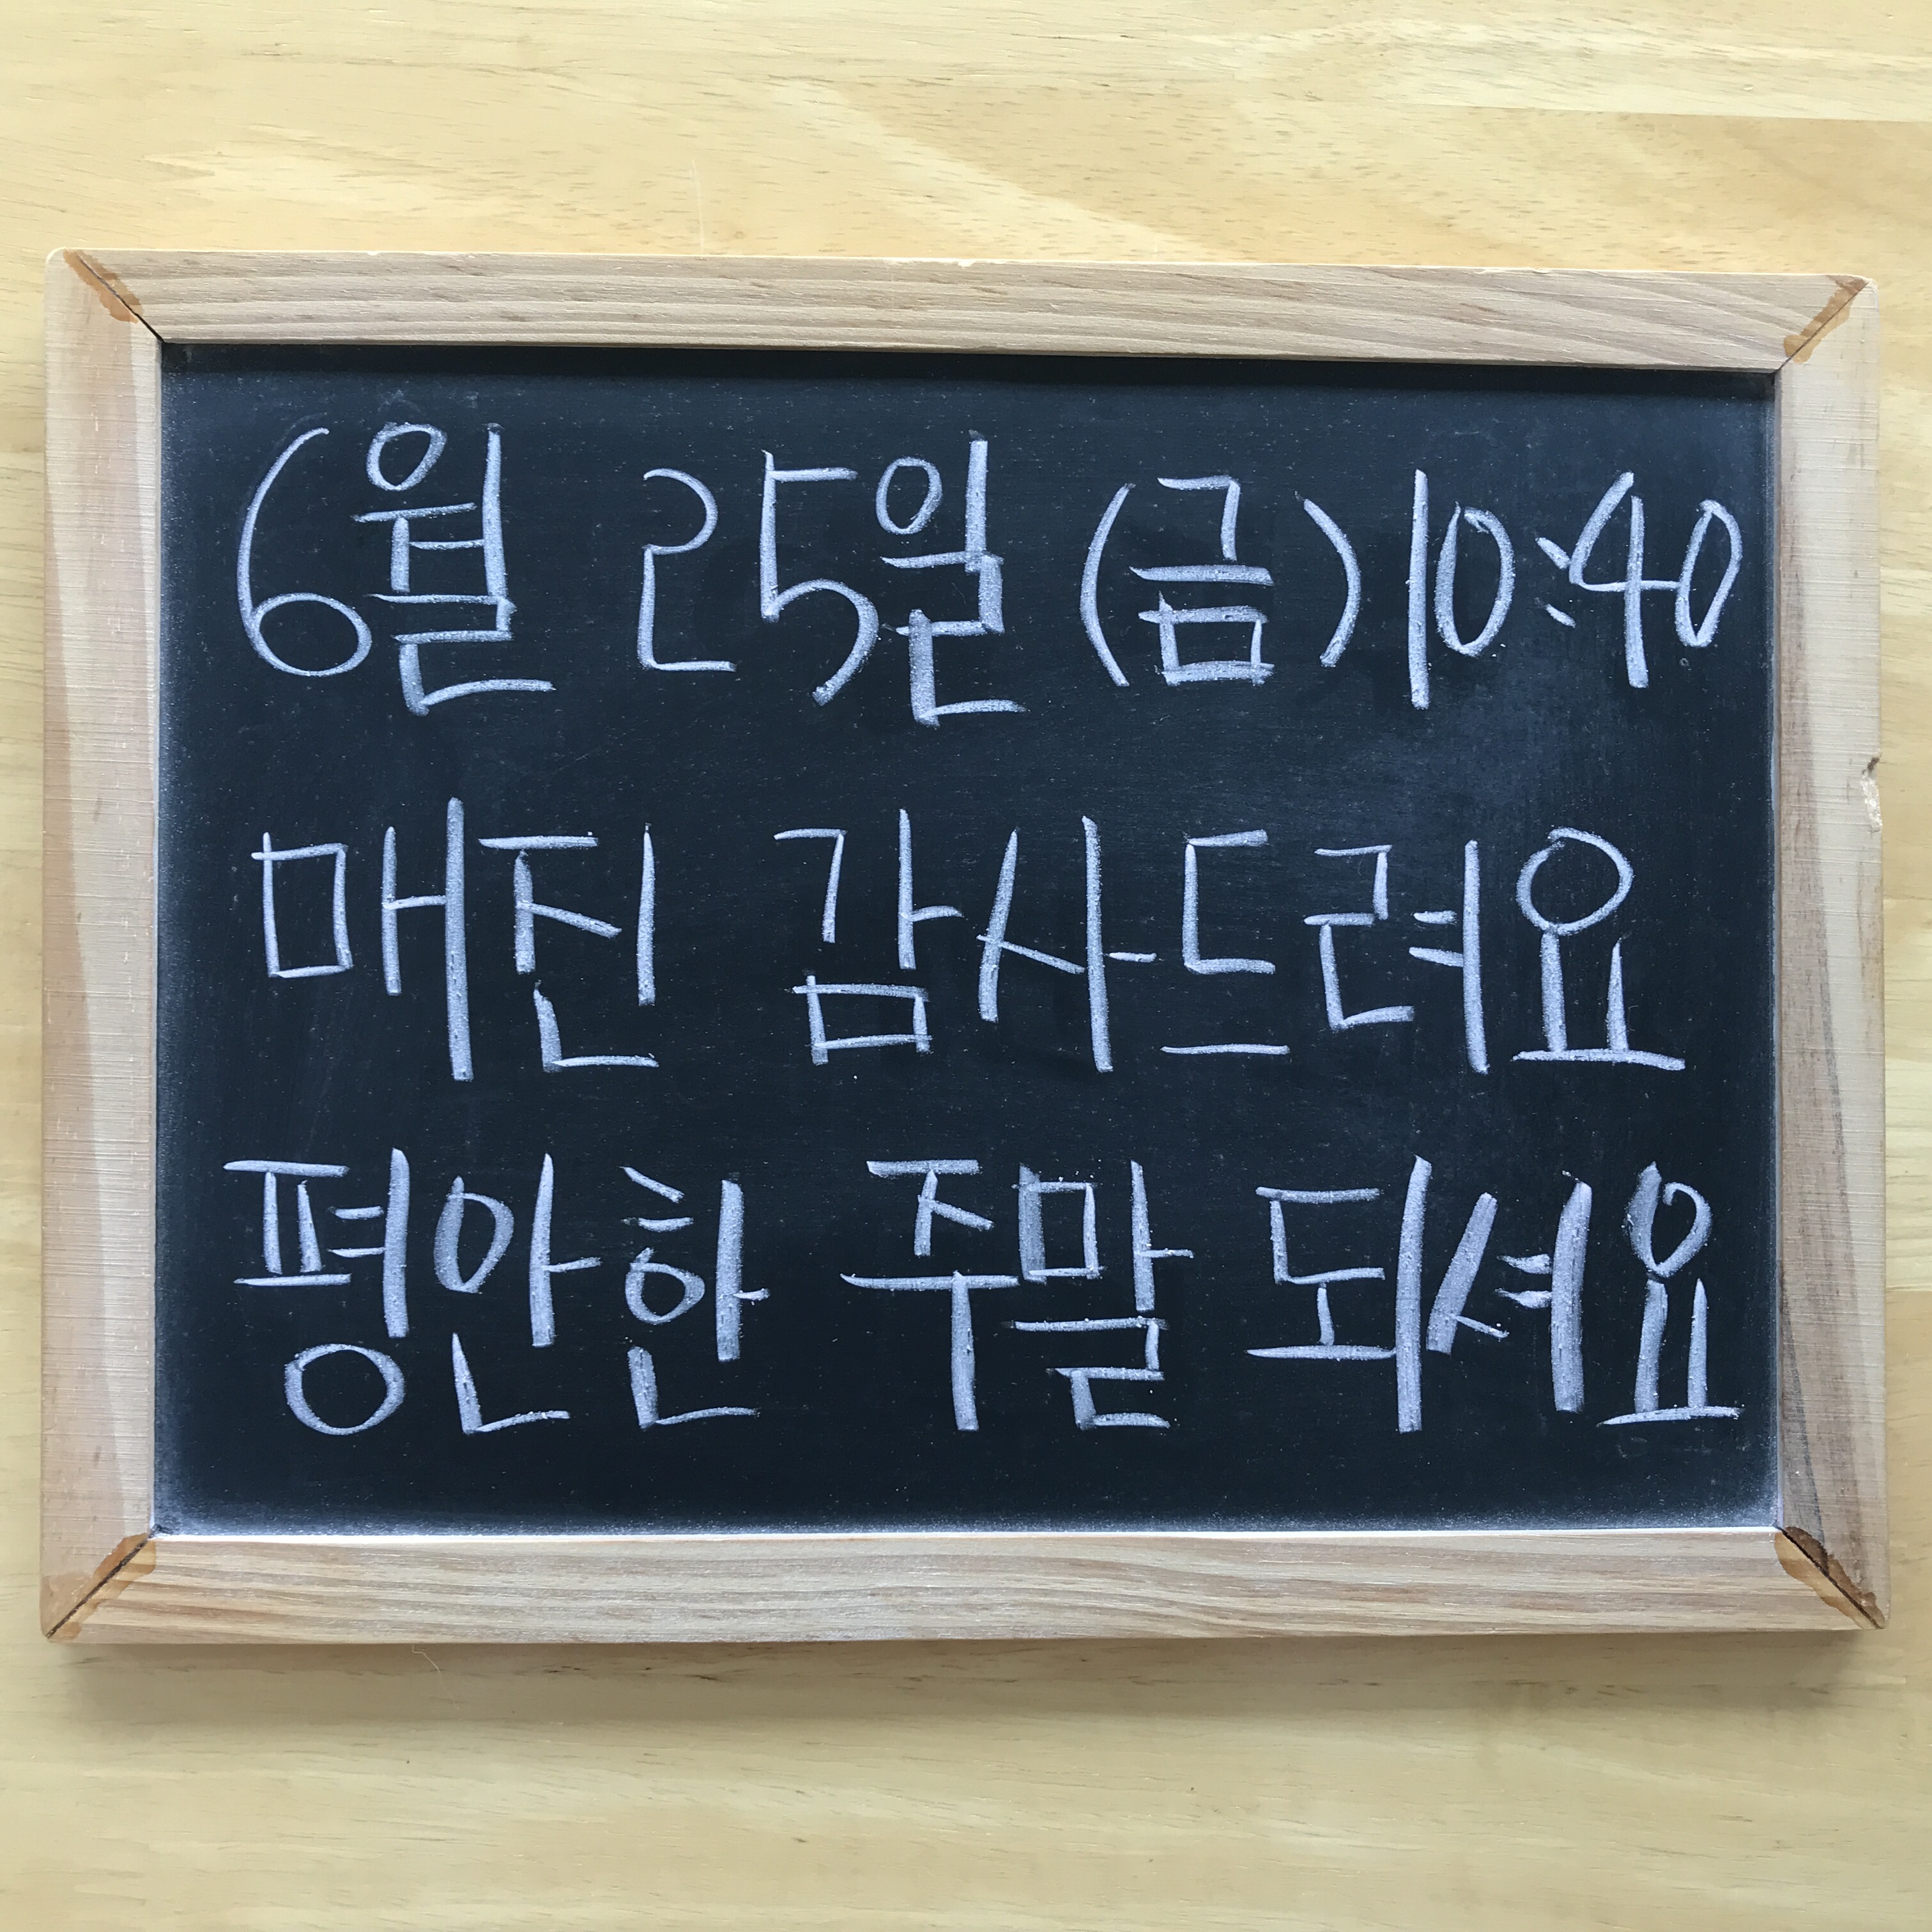 6월 25일 (금) 10:40
매진 감사드려요
평안한 주말 되셔요